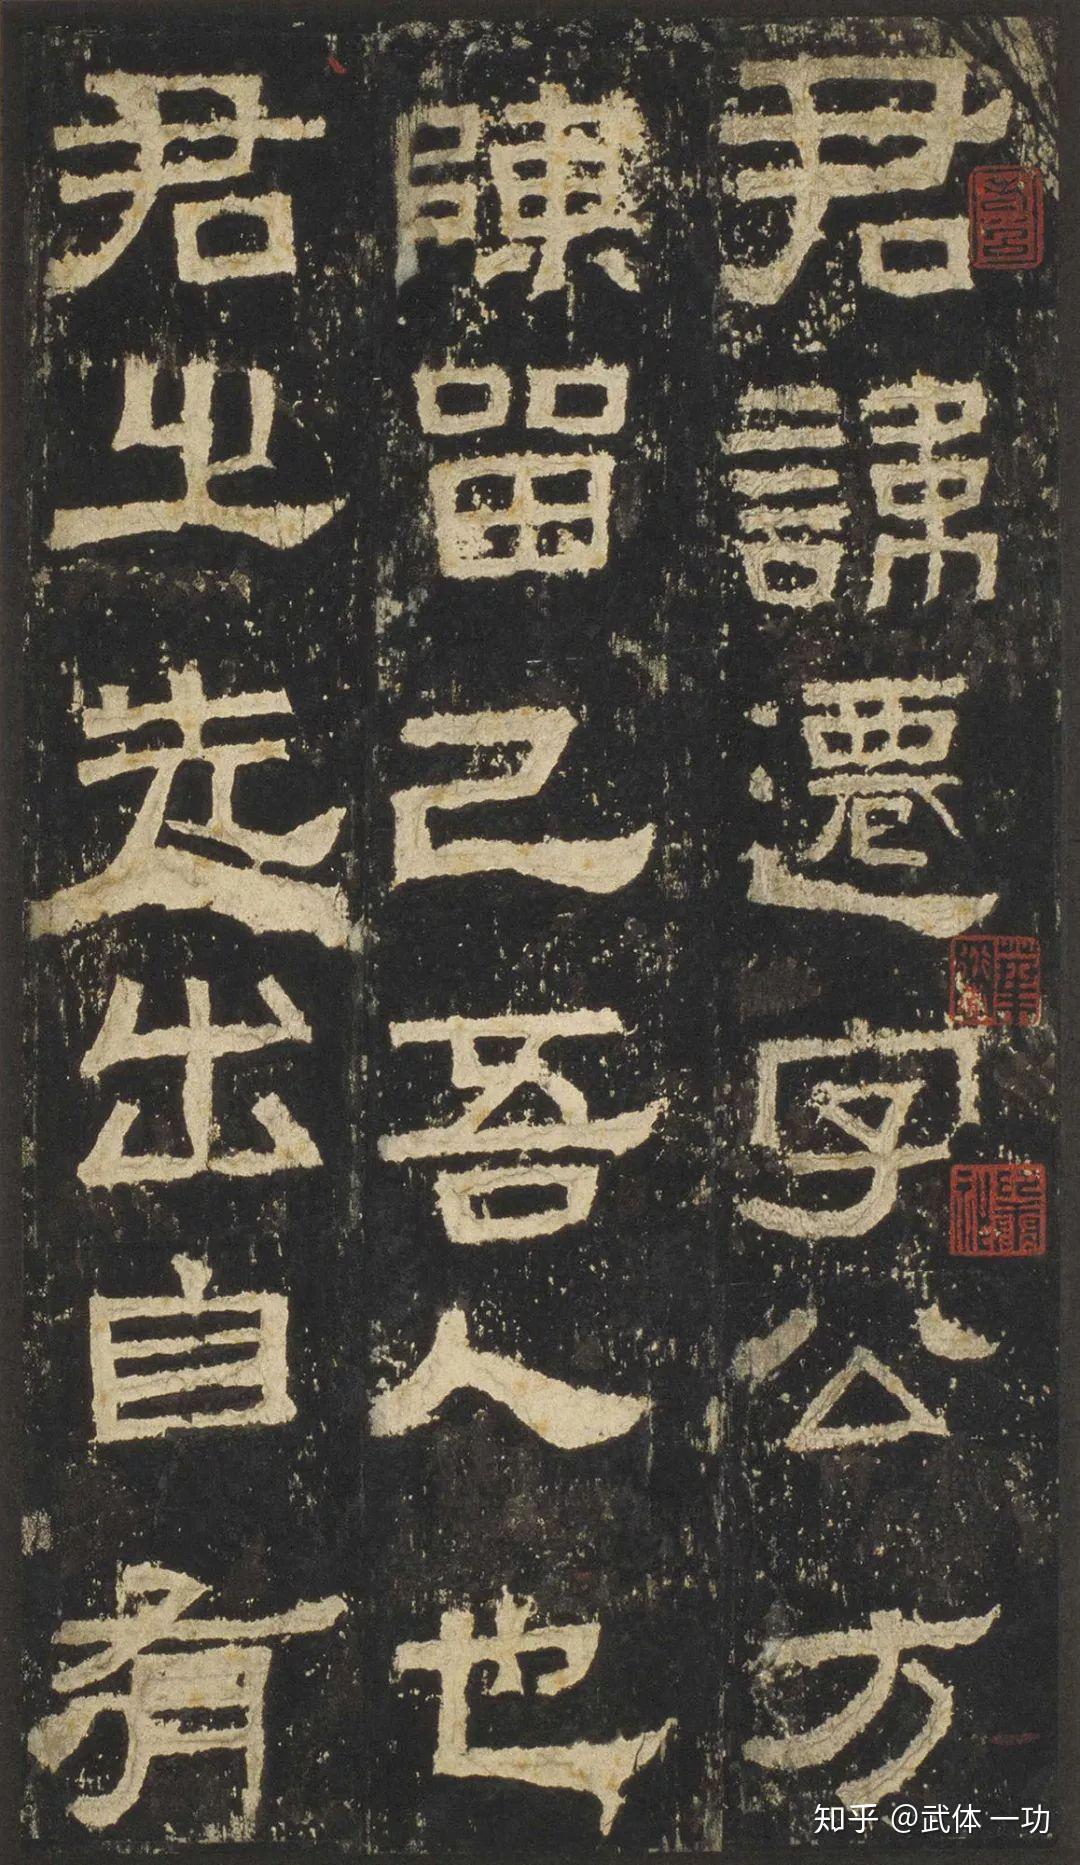 君諱遷字公方
陳留己吾人也
君之先出自有
知乎 @武体一功